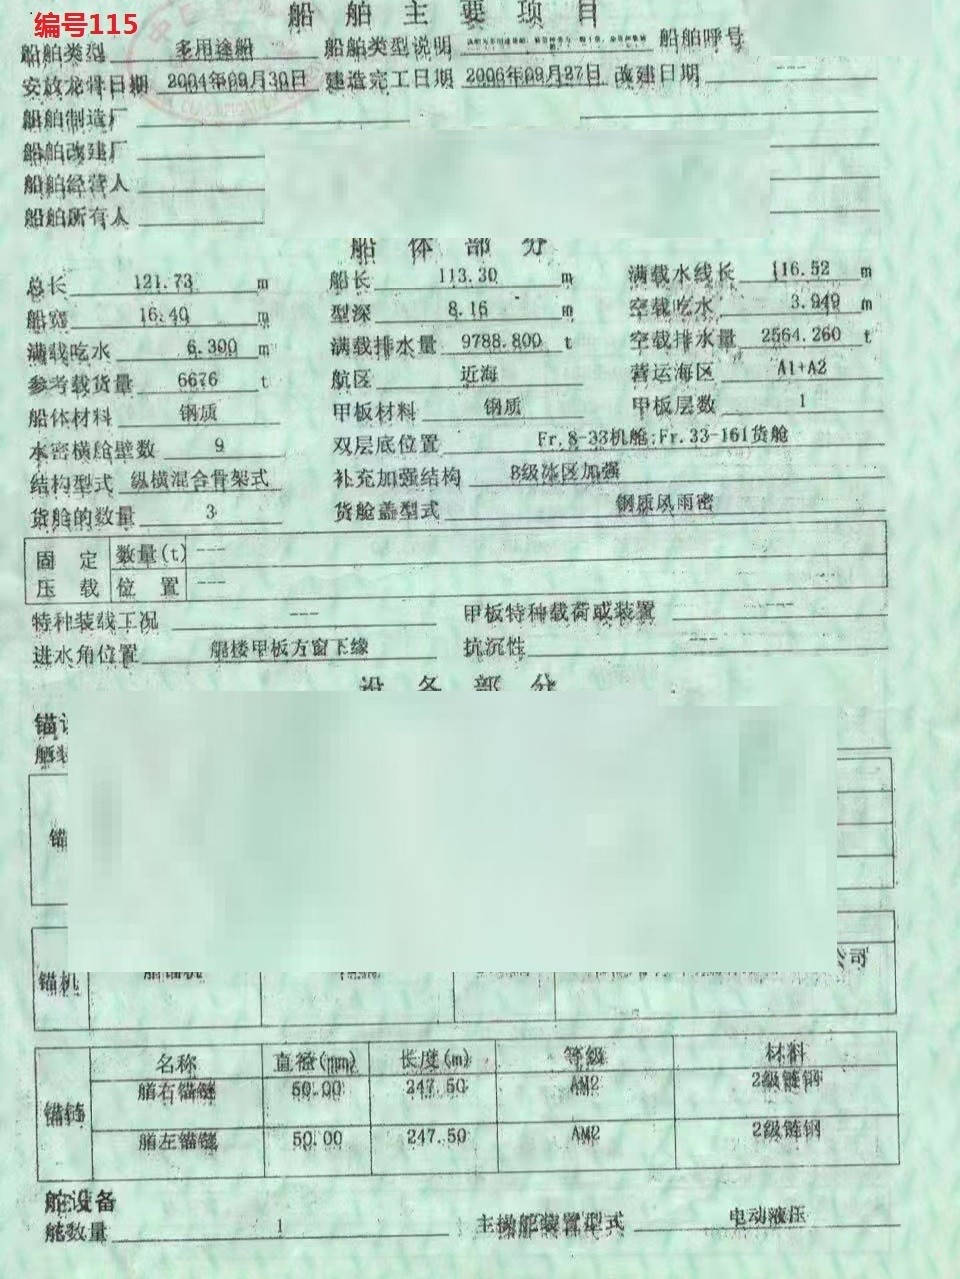 编号115
船舶主要项目
船舶类型 多用途船 船舶类型说明 船舶呼号
安放龙骨日期 2004年09月30日 建造完工日期 2006年09月27日 改建日期 ---
船舶制造厂
船舶改建厂
船舶经营人
船舶所有人
船体部分
总长 121.73 m 船长 113.30 m 满载水线长 116.52 m
船宽 16.40 m 型深 8.16 m 空载吃水 3.949 m
满载吃水 6.300 m 满载排水量 9788.800 t 空载排水量 2564.260 t
参考载货量 6676 t 航区 近海 营运海区 A1+A2
船体材料 钢质 甲板材料 钢质 甲板层数 1
水密横舱壁数 9 双层底位置 Fr.8-33机舱;Fr.33-161货舱
结构型式 纵横混合骨架式 补充加强结构 B级冰区加强
货舱的数量 3 货舱盖型式 钢质风雨密
固定 数量(t) ---
压载 位置 ---
特种装线工况 --- 甲板特种载荷或装置 ---
进水角位置 艉楼甲板方窗下缘 抗沉性 ---
设备部分
锚
锚
锚机 公司
名称 直径(mm) 长度(m) 等级 材料
锚链 艏右锚链 50.00 247.50 AM2 2级链钢
艏左锚链 50.00 247.50 AM2 2级链钢
舵设备
舵数量 1 主操舵装置型式 电动液压